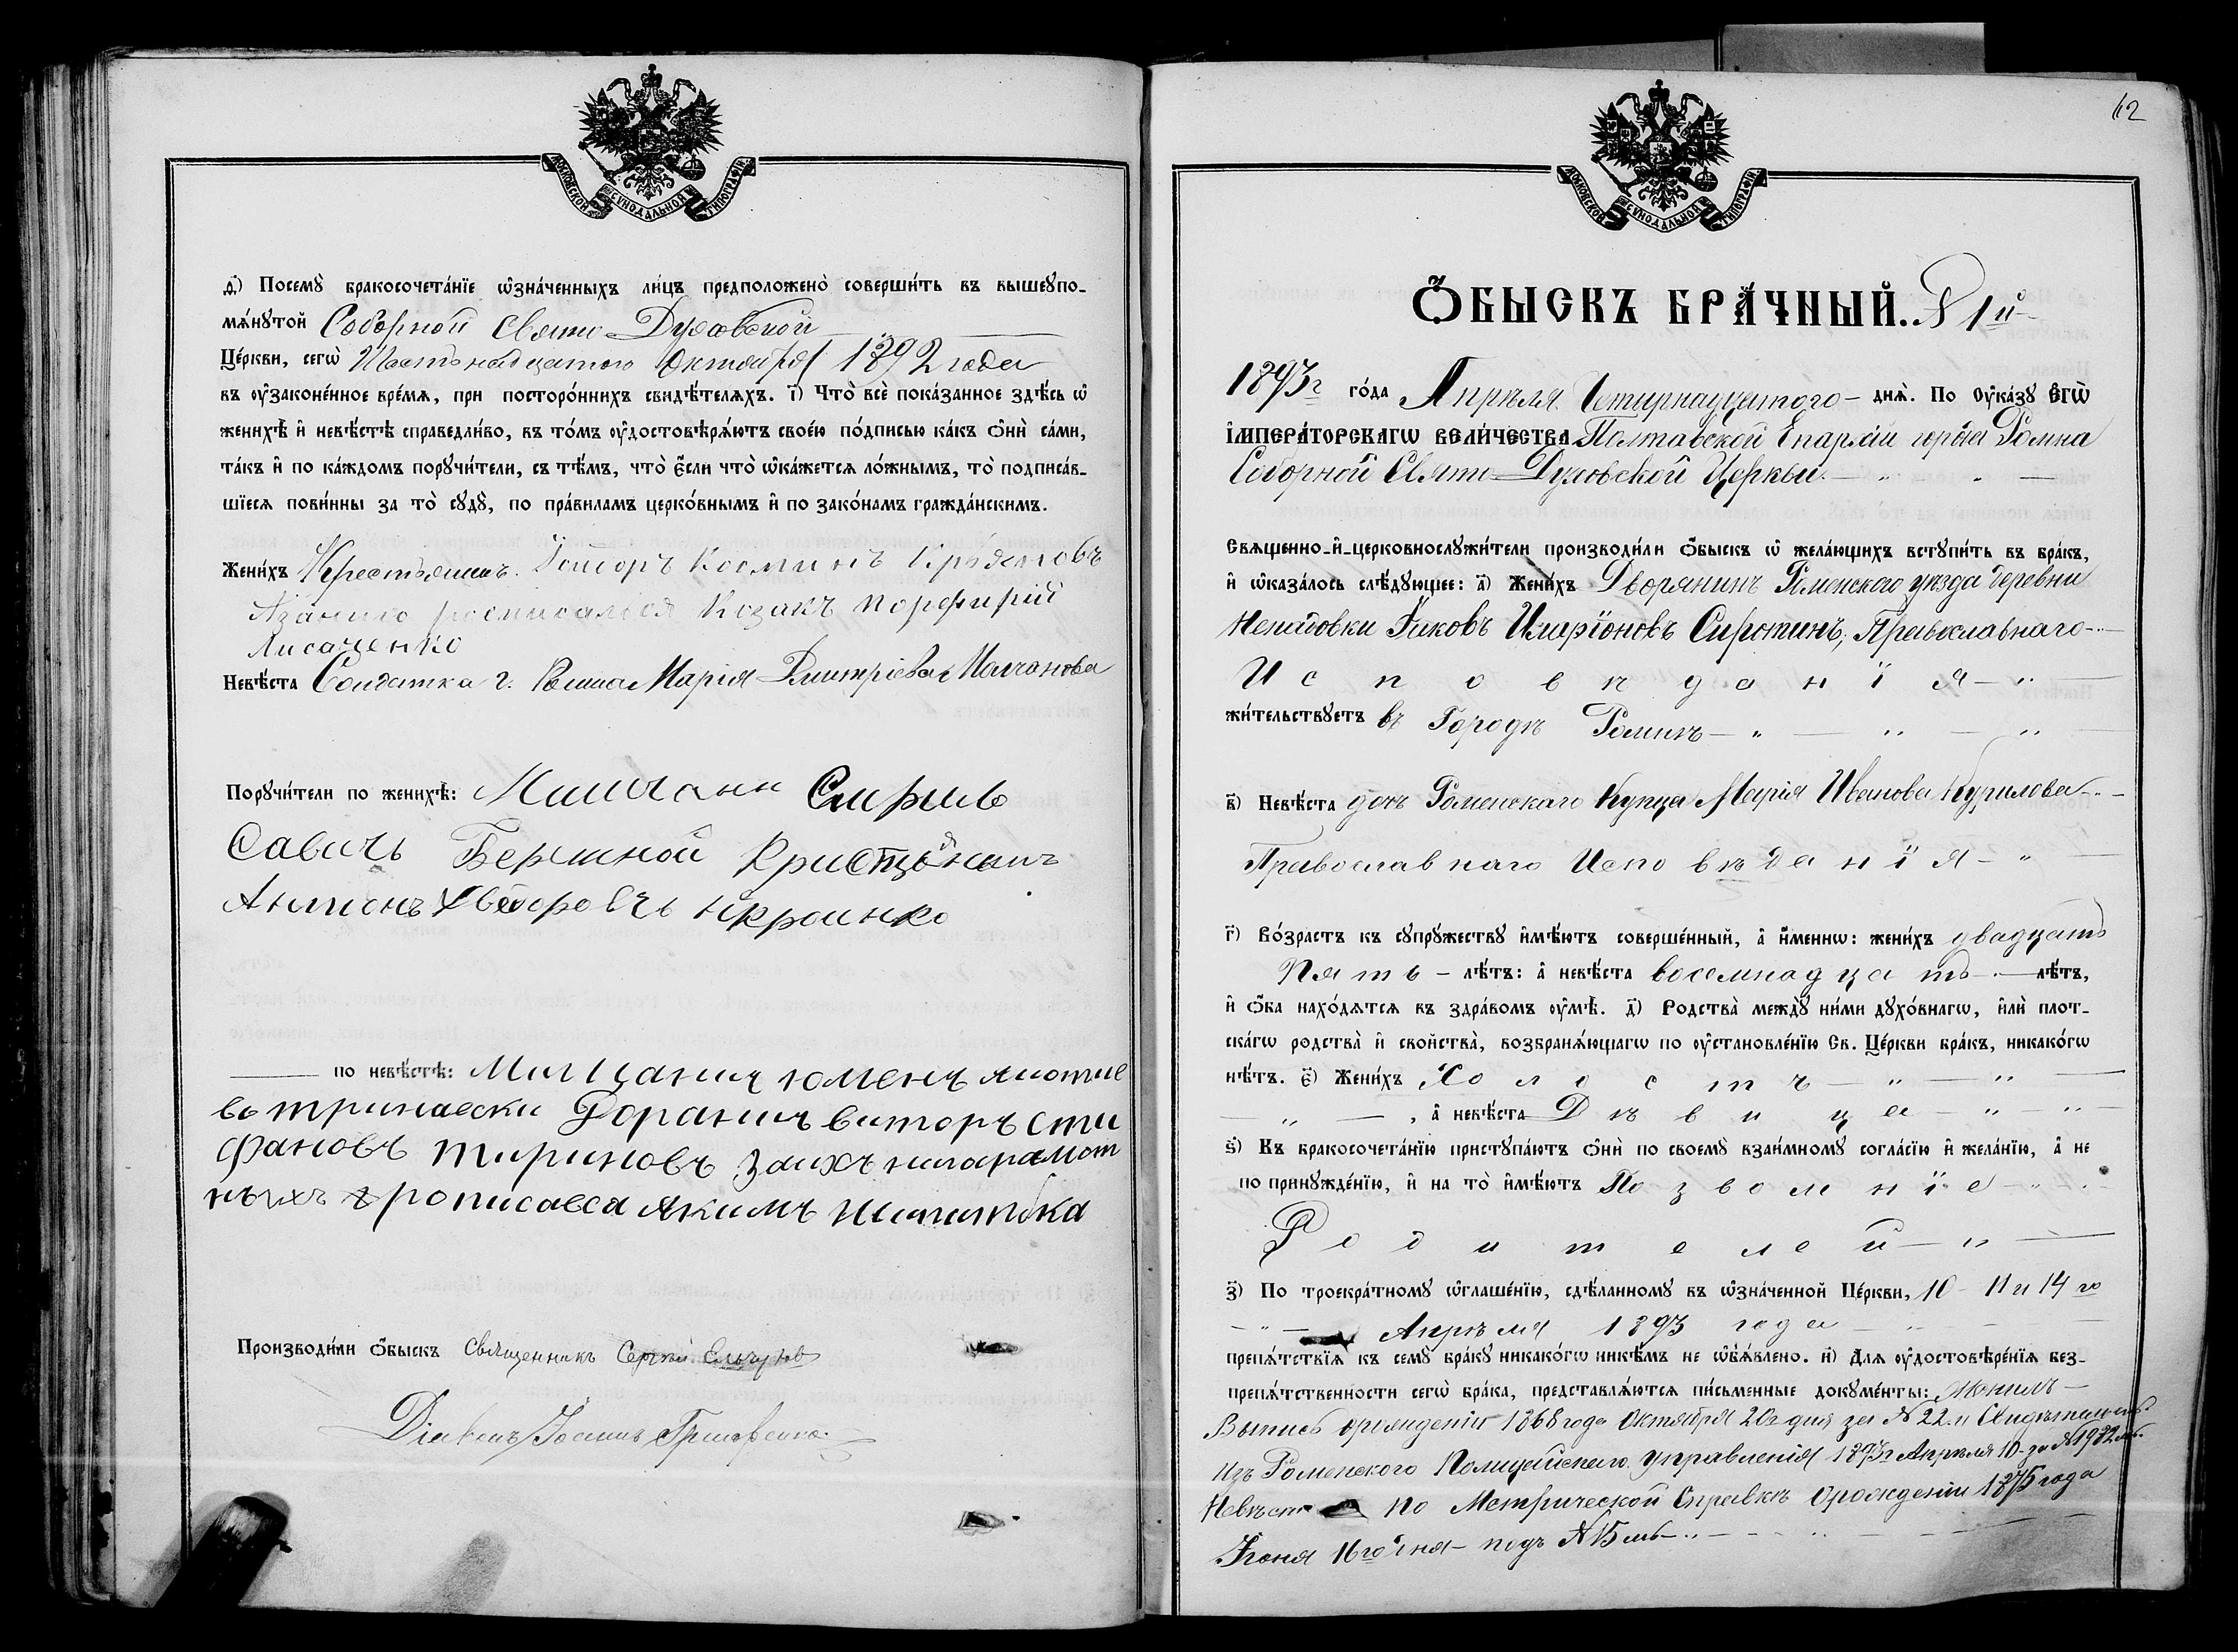 МОСКОВСКОЙ СѴНОДАЛЬНОЙ ТИПОГРАФІИ
д҃і) Посемꙋ̀ бракосочета́нїе ѡ҆зна́ченныхъ ли́цъ предположено̀ соверши́ть въ вышеꙋпо-
мѧ́нꙋтой Соборной Свято-Духовской
Цє́ркви, сегѡ̀ Шестьнадцатого Октября 1892 года
въ ᲂу҆зако́ненное вре́мѧ, при посторо́ннихъ свидѣ́телѧхъ. і҃) Что̀ всѐ пока́занное здѣ́сь ѡ҆
женихѣ̀ и҆ невѣ́стѣ справедли́во, въ то́мъ ᲂу҆достовѣрѧ́ютъ свое́ю по́дписью ка́къ ѻ҆нѝ са́ми,
та́къ и҆ по ка́ждомъ порꙋчи́тели, съ тѣ́мъ, что̀ є҆́сли что̀ ѡ҆ка́жетсѧ ло́жнымъ, то̀ подписа́в-
шїесѧ пови́нны за то̀ сꙋдꙋ̀, по пра́виламъ церко́внымъ и҆ по зако́намъ гражда́нскимъ.
Жени́хъ Крестьянинъ Косминъ
росписался Козакъ Порфирій
Лисаченко
Невѣ́ста Солдатка г. Ромна Марія Дмитріева Молчанова
Порꙋчи́тели по женихѣ̀: Мищанн
Савичъ Бережной
Антонъ
по невѣ́стѣ:
виторъ сти
фановъ тириновъ заихъ ниграмот
ныхъ рописавса якимъ
Производи́ли ѻ҆́быскъ Священникъ Сергій
Діаконъ Іоаннъ
62
МОСКОВСКОЙ СѴНОДАЛЬНОЙ ТИПОГРАФІИ
Ѻ҆́БЫСКЪ БРА́ЧНЫЙ. № 1й
1893 г го́да Апрѣля Четырнадцатого днѧ̀. По Оу҆ка́зꙋ Є҆гѡ̀
І҆мпера́торскагѡ Вели́чества Полтавской Епархіи города Ромна
Соборной Свято-Духовской Церкви
Свѧще́нно-и҆-церковнослꙋжи́тели производи́ли ѻ҆́быскъ ѡ҆ жела́ющихъ встꙋпи́ть въ бра́къ,
и҆ ѡ҆каза́лось слѣ́дꙋющее: а҃) Жени́хъ Дворянинъ Роменского уѣзда деревни
Яковъ Иларіоновъ Сиротинъ, Православнаго
Исповѣданія
жи́тельствꙋетъ въ Городѣ Ромнѣ
в҃) Невѣ́ста дочь Роменскаго Купца Марія Иванова Курилова
Православнаго Исповѣданія
г҃) Во́зрастъ къ сꙋпрꙋ́жествꙋ и҆мѣ́ютъ соверше́нный, а҆ и҆́меннѡ: жени́хъ двадцать
Пять лѣ́тъ: а҆ невѣ́ста восемнадцать лѣ́тъ,
и҆ ѻ҆́ба нахо́дѧтсѧ въ здра́вомъ ᲂу҆мѣ̀. д҃) Родства̀ междꙋ̀ ни́ми дꙋхо́внагѡ, и҆лѝ плот-
ска́гѡ родства̀ и҆ свойства̀, возбранѧ́ющагѡ по ᲂу҆становле́нїю Св. Це́ркви бра́къ, никако́гѡ
нѣ́тъ. є҃) Жени́хъ Холостъ
, а҆ невѣ́ста Дѣвица
ѕ҃) Къ бракосочета́нїю пристꙋпа́ютъ ѻ҆нѝ по своемꙋ̀ взаи́мномꙋ согла́сїю и҆ жела́нїю, а҆ не
по принꙋжде́нїю, и҆ на то̀ и҆мѣ́ютъ Позволніе
Родителей
з҃) По троекра́тномꙋ ѡ҆глаше́нїю, сдѣ́ланномꙋ въ ѡ҆зна́ченной Це́ркви, 10 - 11 и 14 го
Апрѣля 1893 года
препѧ́тствїѧ къ семꙋ̀ бра́кꙋ никако́гѡ никѣ́мъ не ѡ҆б̾ѧ́влено. и҃) Длѧ ᲂу҆достовѣре́нїѧ без-
препѧ́тственности сегѡ̀ бра́ка, представлѧ́ютсѧ пи́сьменные докꙋме́нты:
Выпись орождении 1868 года Октября 20г дня за № 22.
Изъ Роменского Полицейскаго управленія 1893 г Апрѣля 10
Невѣст по Метрической Справкѣ орождении 1875 года
Іюня 16го дня подъ № 15 мъ